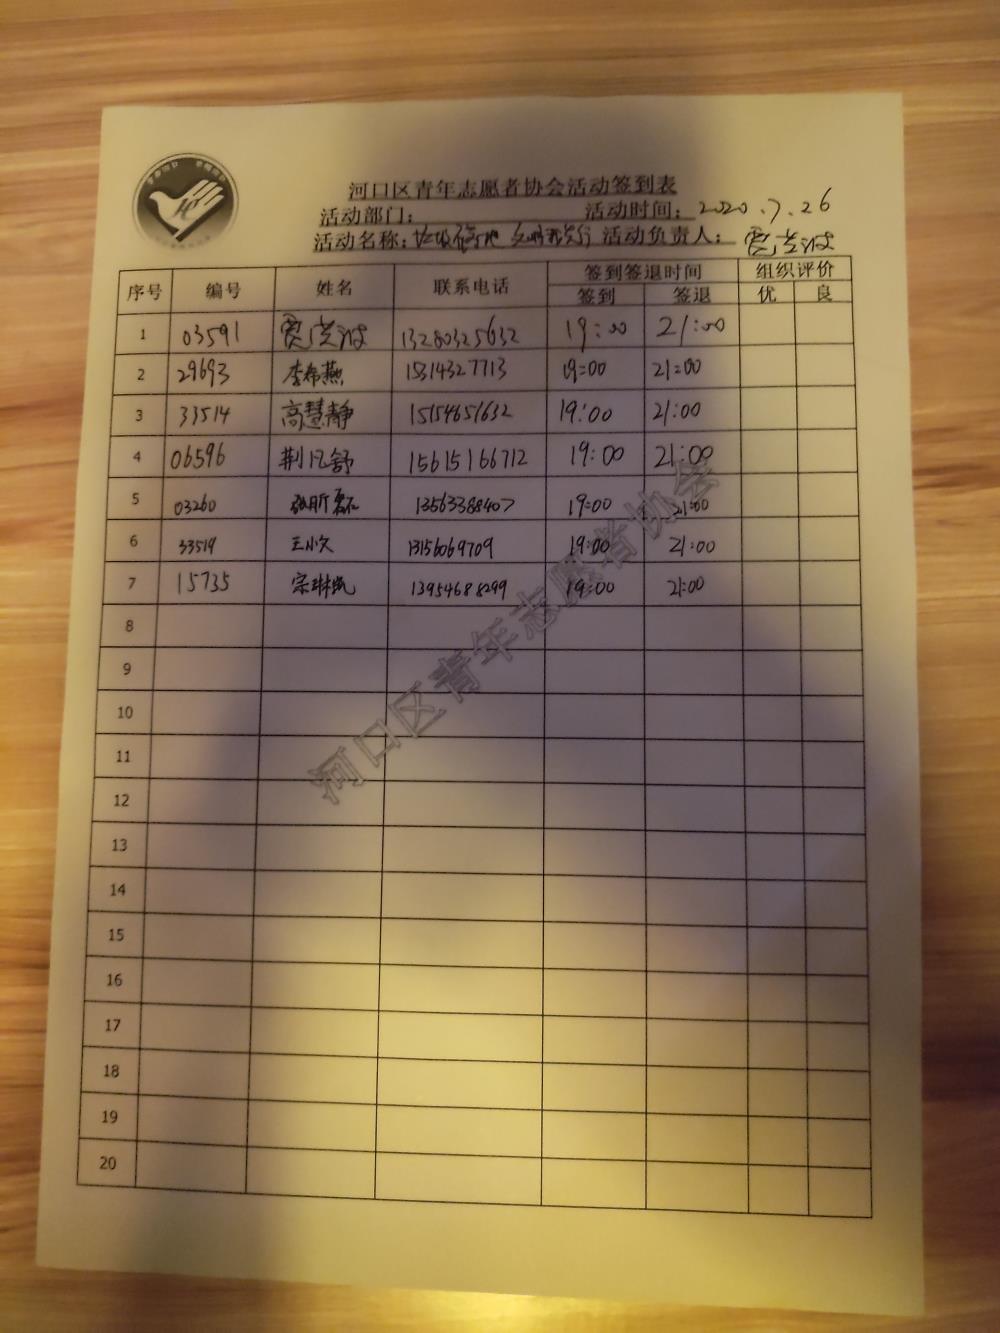 河口区青年志愿者协会活动签到表
活动部门： 活动时间：2020.7.26
活动名称：垃圾不落地 文明我先行 活动负责人：贾岩波
序号 编号 姓名 联系电话 签到签退时间 组织评价
签到 签退 优 良
1 03591 贾岩波 13280325632 19:00 21:00
2 29693 李希燕 15314327713 19:00 21:00
3 33514 高慧静 15154651632 19:00 21:00
4 06596 荆凡舒 15615166712 19:00 21:00
5 03260 张昕磊 13563388407 19:00 21:00
6 33519 王小文 13156069709 19:00 21:00
7 15735 宗琳凯 13954688299 19:00 21:00
8
9
10
11
12
13
14
15
16
17
18
19
20
河口区青年志愿者协会